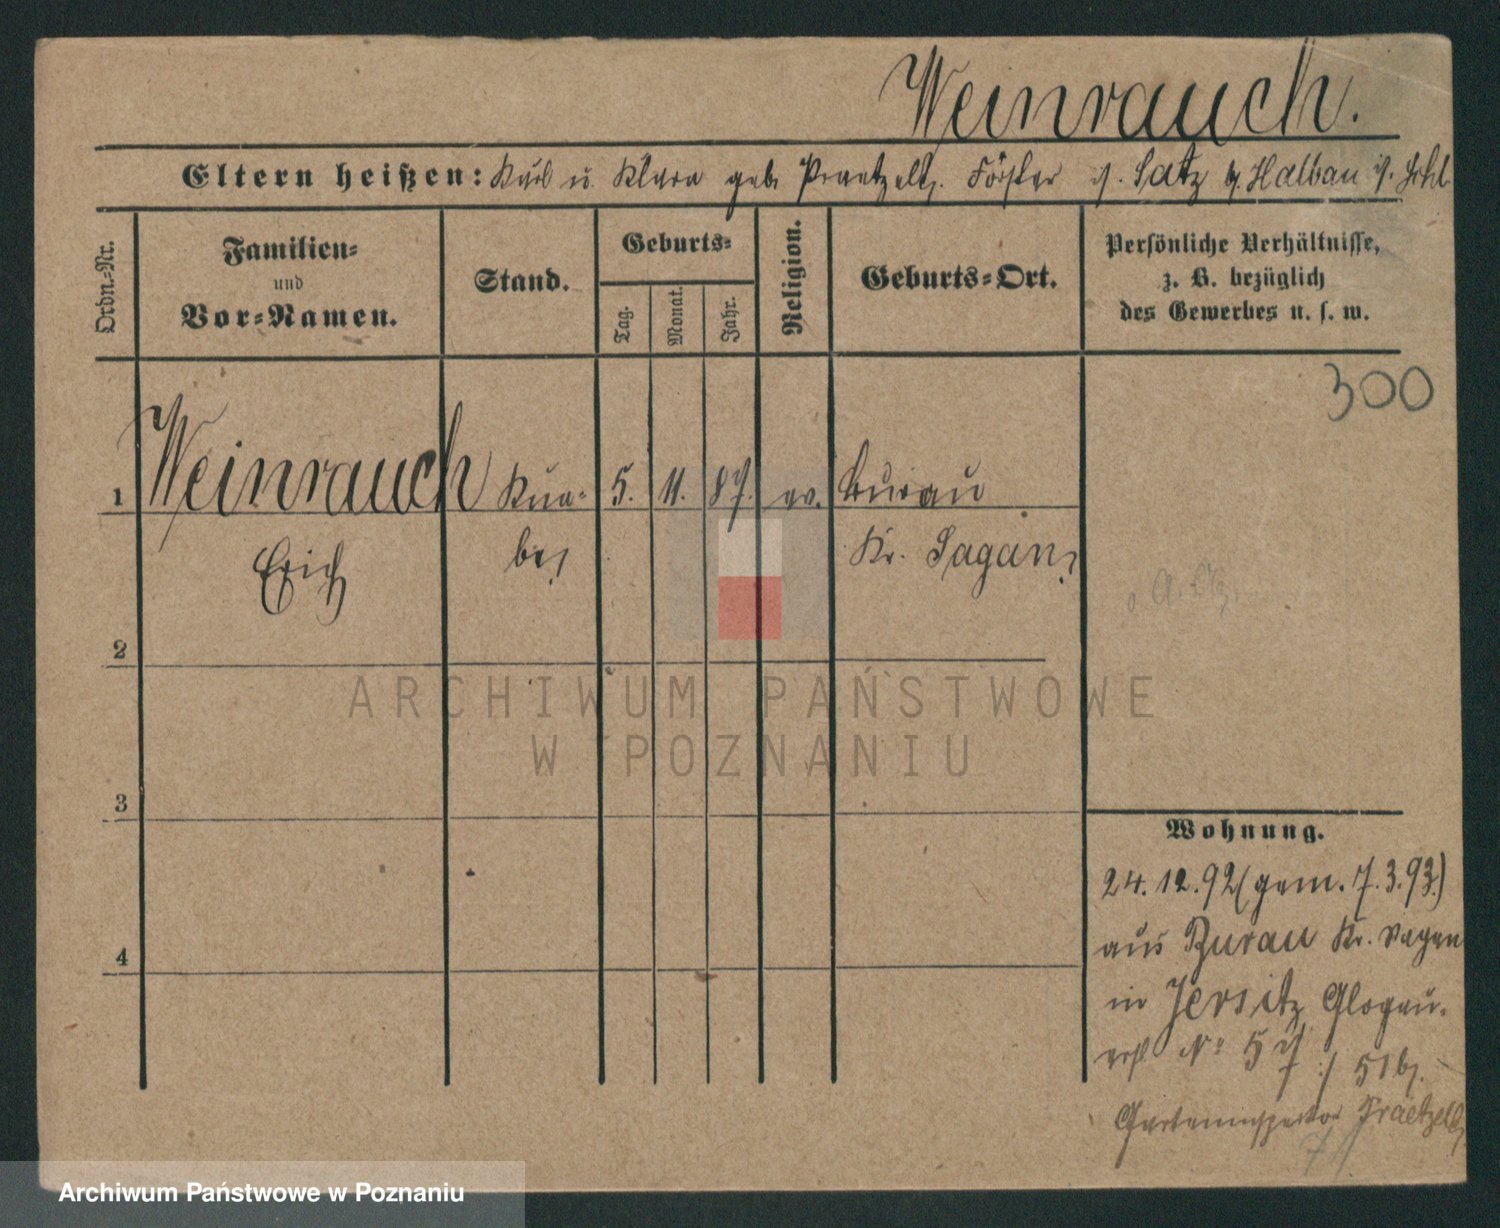 Weinrauch.
Eltern heißen: Karl u. Klara geb. Praetzelt, Förster i/. Satz b/. Halbau i/. Schl.
Ordn.-Nr.
Familien-
und
Vor-Namen.
Stand.
Geburts-
Tag.
Monat.
Jahr.
Religion.
Geburts-Ort.
Persönliche Verhältnisse,
z. B. bezüglich
des Gewerbes u. s. w.
300
1 Weinrauch Kna- 5. 11. 87. ev. Burau
Erich be, Kr. Sagan,
2
3
4
Wohnung.
24.12.92 (gem. 7.3.93)
aus Burau Kr. Sagan
in Jersitz Glogau.
No 57 / 51 b/.
Garteninspektor Praetzelt
ARCHIWUM PAŃSTWOWE
W POZNANIU
Archiwum Państwowe w Poznaniu